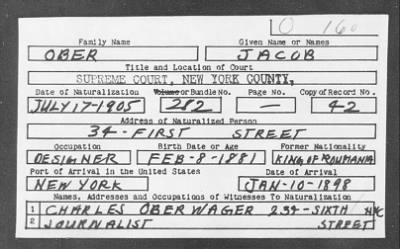 O 160
Family Name Given Name or Names
OBER JACOB
Title and Location of Court
SUPREME COURT, NEW YORK COUNTY,
Date of Naturalization Volume or Bundle No. Page No. Copy of Record No.
JULY 17-1905 282 — 42
Address of Naturalized Person
34-FIRST STREET
Occupation Birth Date or Age Former Nationality
DESIGNER FEB-8-1881 KING OF ROUMANIA
Port of Arrival in the United States Date of Arrival
NEW YORK JAN-10-1898
Names, Addresses and Occupations of Witnesses To Naturalization
1 CHARLES OBERWAGER 234-SIXTH NYC
2 JOURNALIST STREET